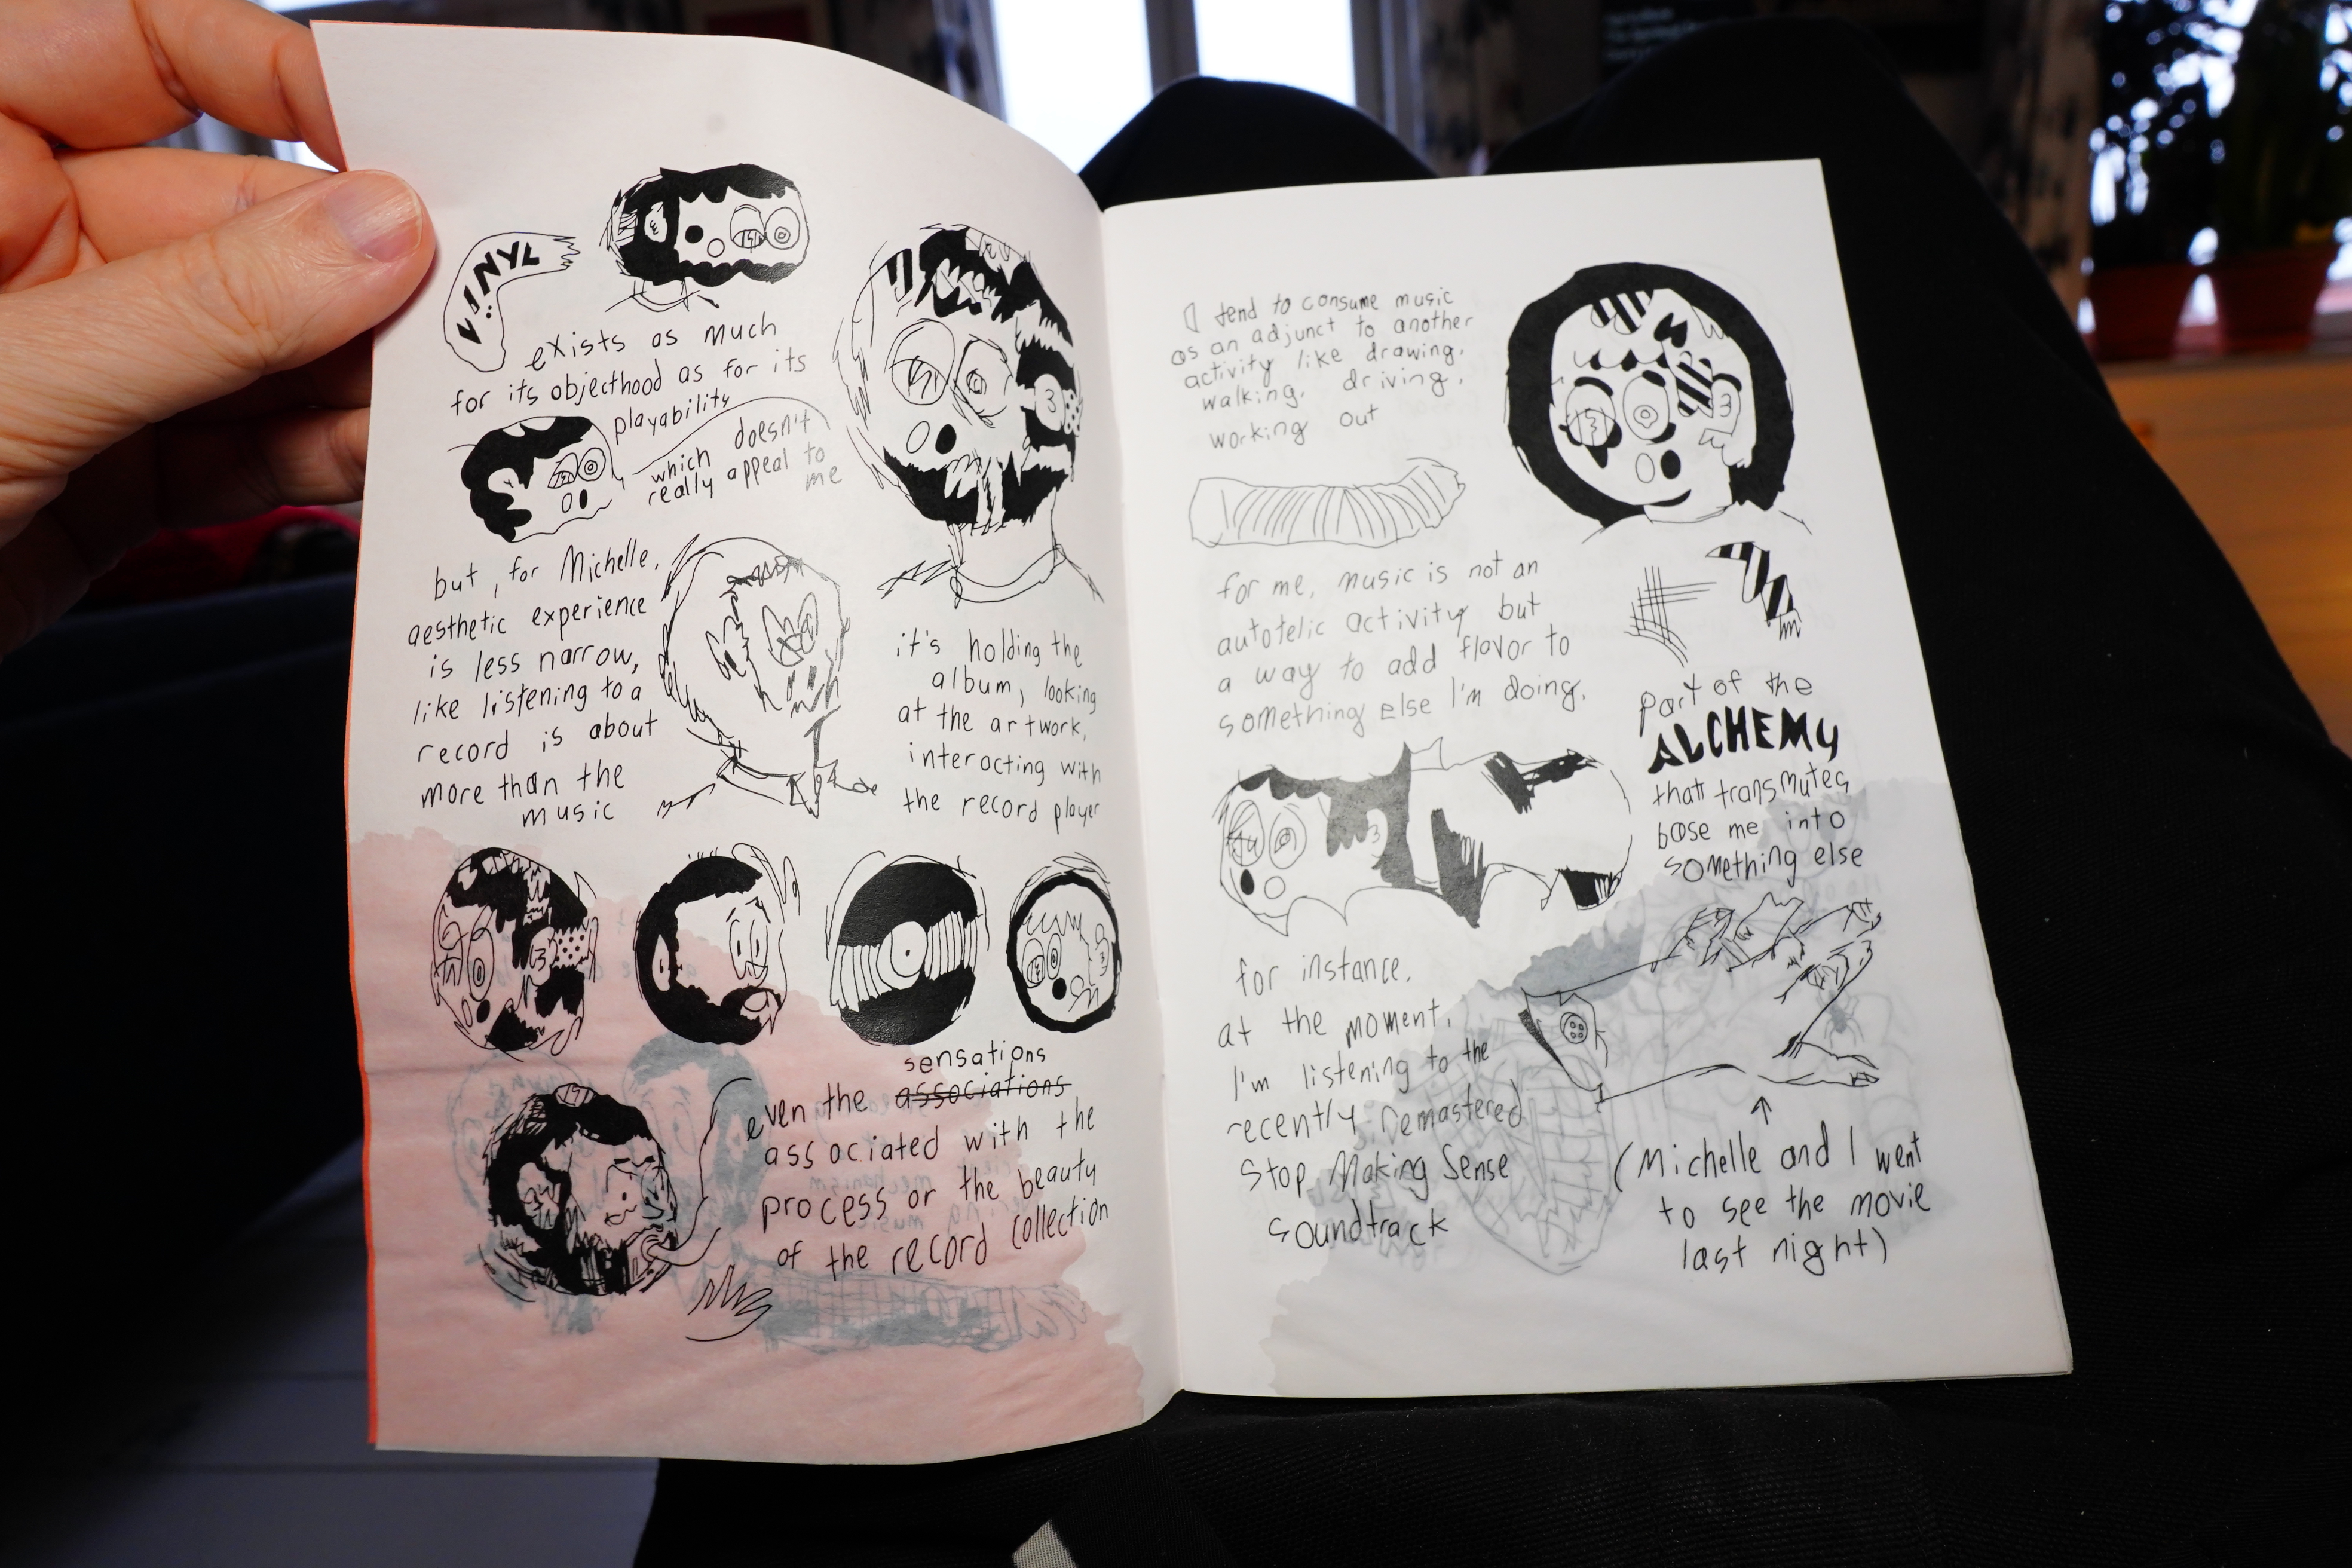 VINYL
exists as much
for its objecthood as for its
playability
which doesn't
really appeal to
me
but, for Michelle,
aesthetic experience
is less narrow,
like listening to a
record is about
more than the
music
it's holding the
album, looking
at the artwork,
interacting with
the record player
sensations
even the associations
associated with the
process or the beauty
of the record collection
I tend to consume music
as an adjunct to another
activity like drawing,
walking, driving,
working out
for me, music is not an
autotelic activity but
a way to add flavor to
something else I'm doing,
part of the
ALCHEMY
that transmutes
base me into
something else
for instance,
at the moment,
I'm listening to the
recently remastered
Stop Making Sense
soundtrack
(Michelle and I went
to see the movie
last night)